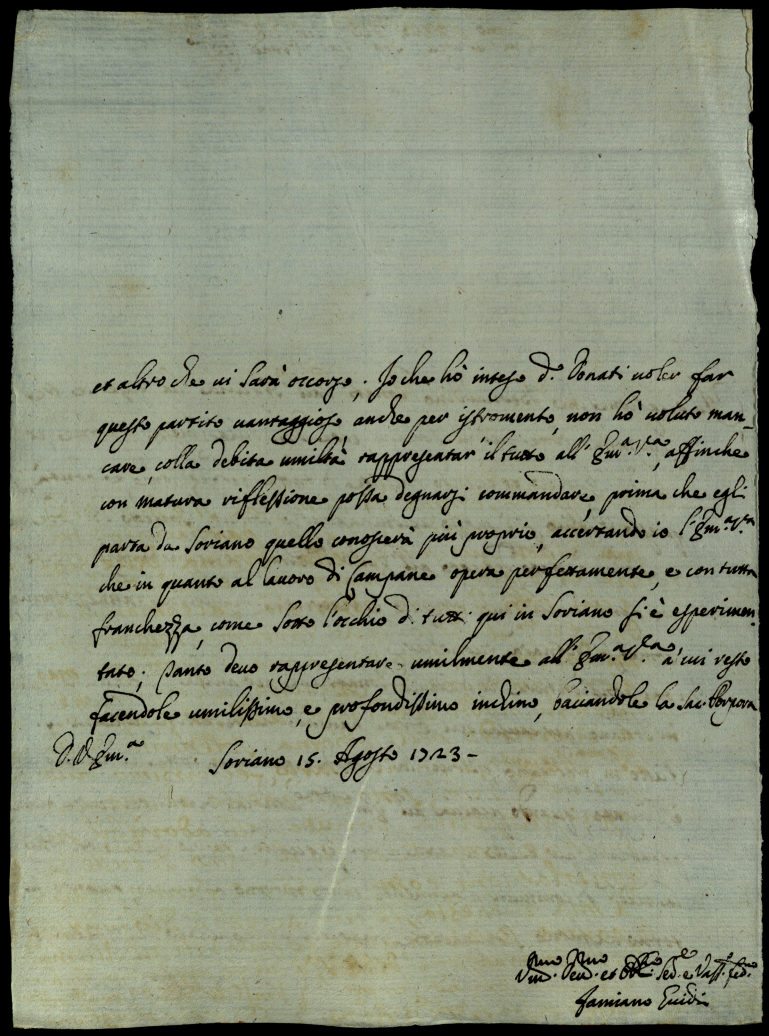 et altro che vi sarà occorso. Io che hò inteso d.º Donati voler far
questo partito vantaggioso anche per istromento, non hò voluto man-
care colla debita umiltà rappresentar' il tutto all' Em.ª V.ª, affinche
con matura riflessione possa degnarsi commandare, prima che egli
parta da Soriano quello conoscerà più proprio, accertando io l'Em.ª V.ª
che in quanto al lavoro di Campane opera perfettamente, e con tutta
franchezza, come sotto l'occhio di tutti qui in Soriano si è esperimen-
tato. Tanto devo rappresentare umilmente all' Em.ª V.ª a' cui resto
facendole umilissimo, e profondissimo inchino, baciandole la Sac. Porpora
D. V. Em.ª
Soriano 15. Agosto 1723-
Um.mo Dev.mo et Obl.mo Ser.e e Vass.